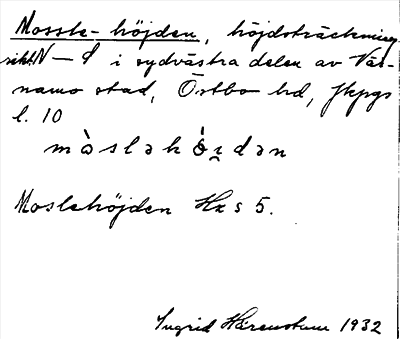 Mossle-höjden, höjdsträckning
rikt. N–S i sydvästra delen av Vär-
namo stad, Östbo hd, Jkpgs
l. 10
mòsləhö̀i̯dən
Moslehöjden Hx s 5.
Ingrid Härenstam 1932